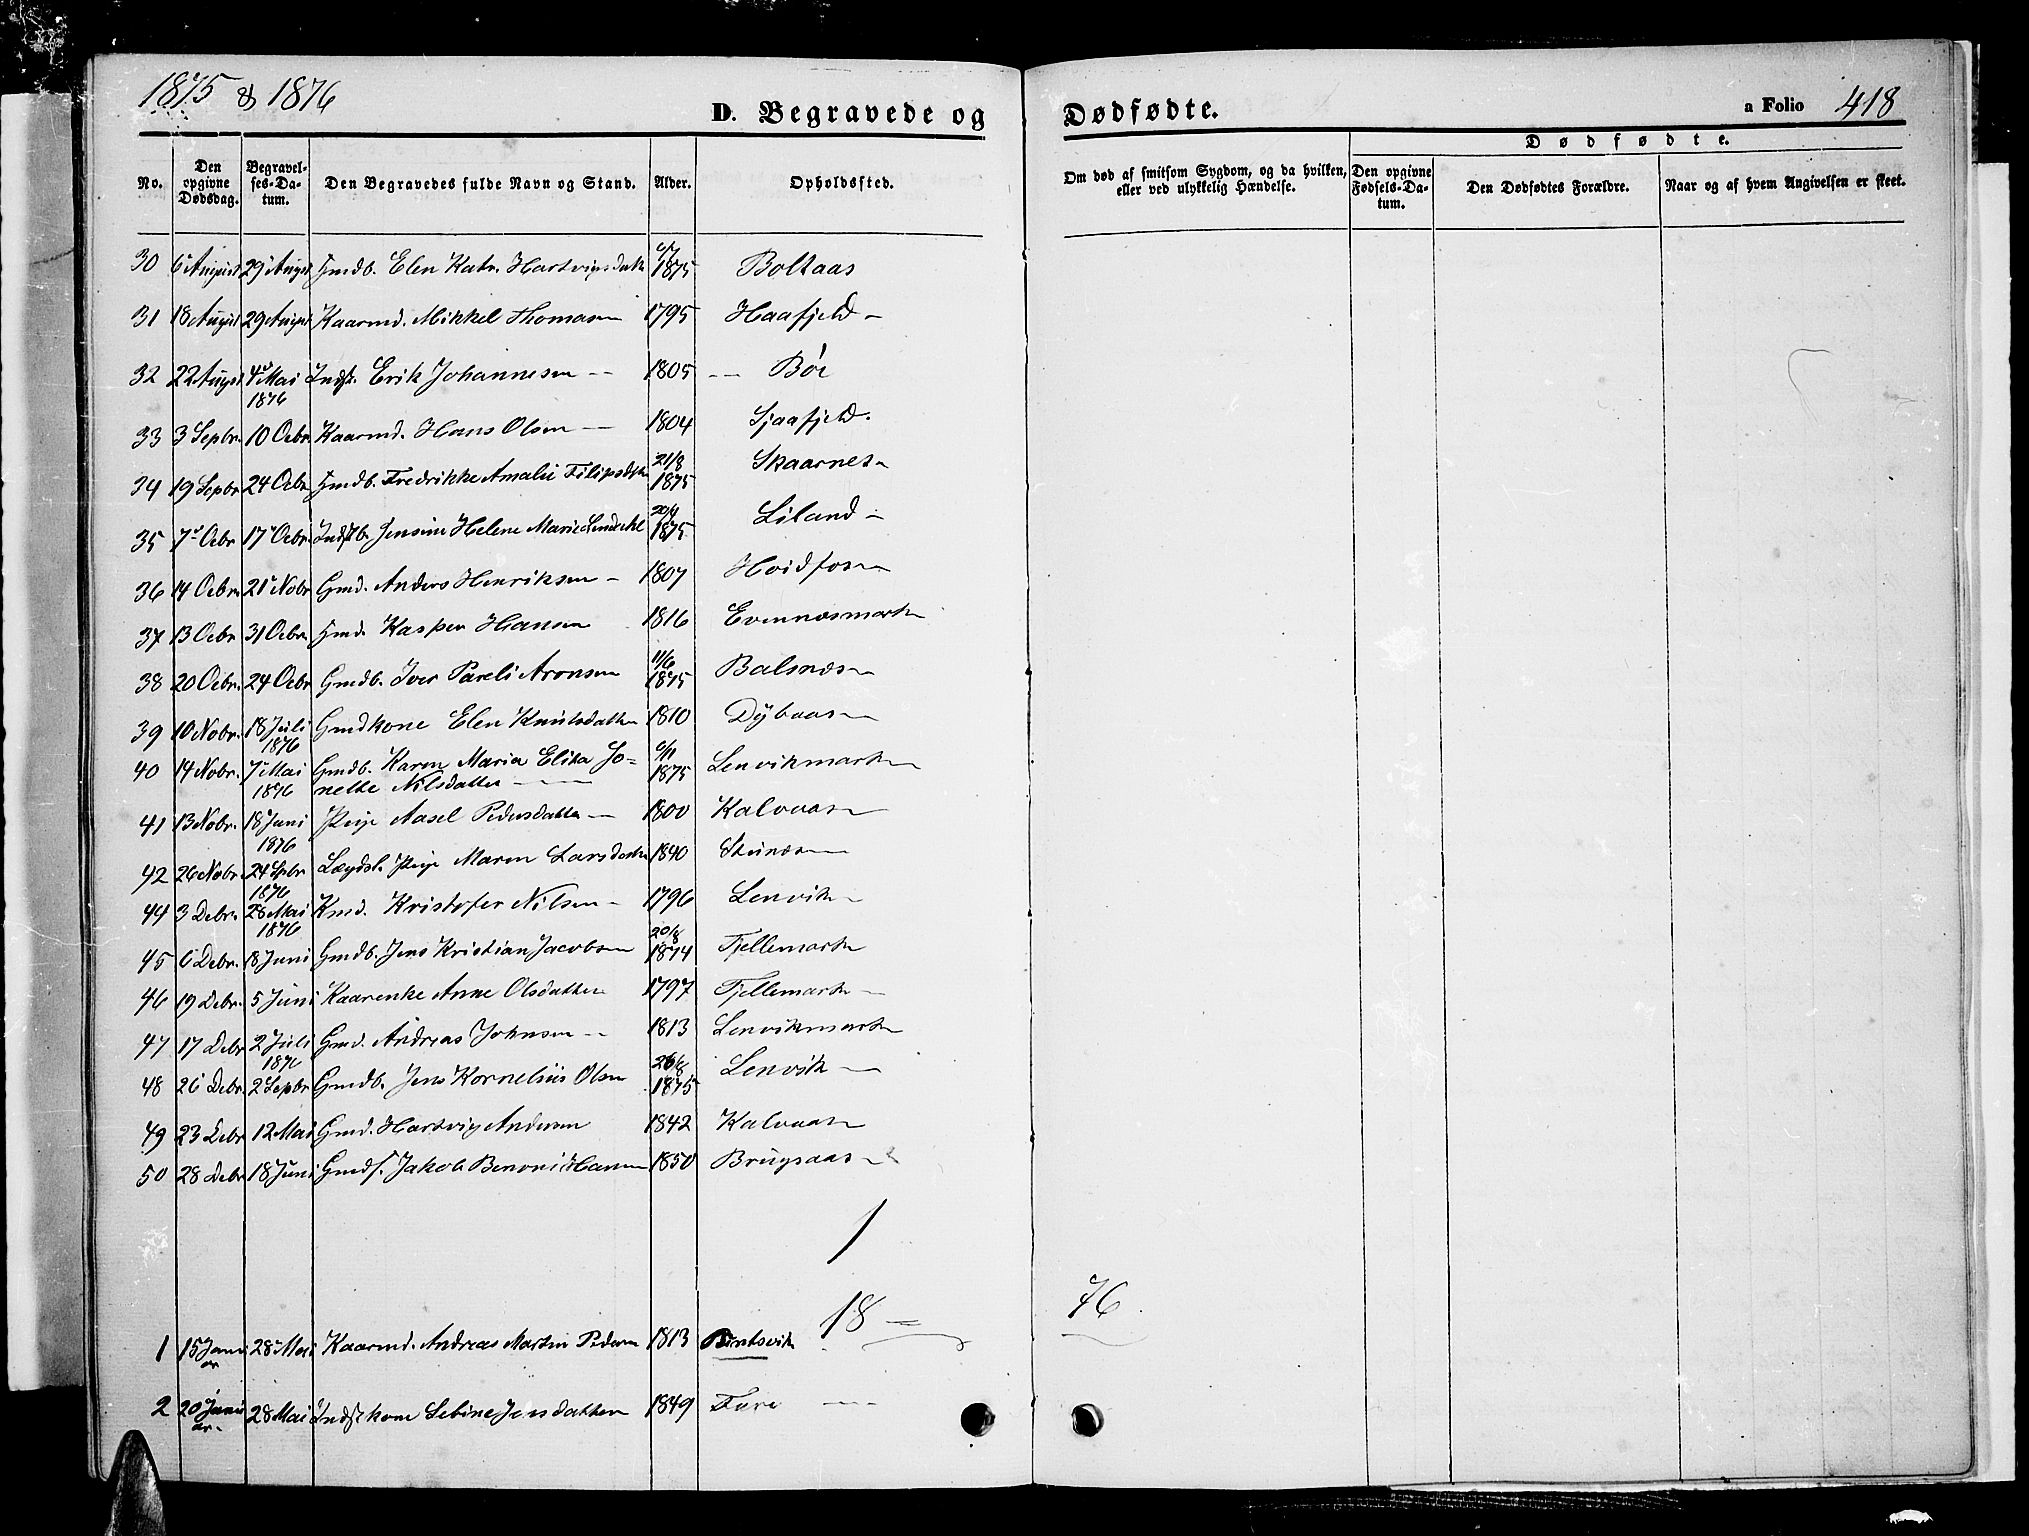 1875 & 1876
D. Begravede og Dødfødte.
a Folio 418
Dødfødte.
No. Den opgivne Dødsdag. Begravelses-Datum. Den Begravedes fulde Navn og Stand. Alder. Opholdssted. Om død af smitsom Sygdom, og da hvilken, eller ved ulykkelig Hændelse. Den opgivne Fødsels-Datum. Den Dødfødtes Forældre. Naar og af hvem Angivelsen er skeet.
30 6 August 29 August Gmdb. Elen Katr. Hartvigsdatter 6/7 1875 Boltaas
31 18 August 29 August Kaarmd. Mikkel Thomasen 1795 Haafjeld
32 22 August 4 Mai 1876 Indst. Erik Johannesen 1805 Bøe
33 3 Sepbr. 10 Ocbr. Kaarmd. Hans Olsen 1804 Sjaafjeld.
34 19 Sepbr. 24 Ocbr. Gmdb. Fredrikke Amalie Filipsdtr 21/8 1875 Skaarnes
35 7 Ocbr 17 Ocbr. Indstb. Jensine Helene Marie Lindahl 1875 Liland
36 14 Ocbr. 21 Nobr Gmd. Anders Henriksen 1807 Hvidfos
37 13 Ocbr 31 Ocbr. Gmd. Kasper Hansen 1816 Evennæsmark
38 20 Ocbr. 24 Ocbr Gmdb. Iver Pareli Aronsen 11/6 1875 Balsnæs
39 10 Nobr. 18 Juli 1876 Gmdkone Elen Knutsdatter 1810 Dybaas
40 14 Nobr. 7 Mai 1876 Gmdb. Karen Maria Elisa Jonette Nilsdatter 6/11 1875 Lenvikmark
41 13 Nobr. 18 Juni 1876 Pige Aasel Pedersdatter 1800 Kalvaas
42 26 Nobr. 24 Spbr 1876 Lægdsl. Pige Maren Larsdatter 1840 Stunæs
44 3 Debr. 28 Mai 1876 Kmd. Kristofer Nilsen 1796 Lenvik
45 6 Debr. 18 Juni Gmdb. Jens Kristian Jacobsen 20/8 1874 Fjellemark
46 19 Debr. 5 Juni Kaarenke Anne Olsdatter 1797 Fjellemark
47 17 Debr 2 Juli 1876 Gmd. Andreas Johnsen 1813 Lenvikmark
48 26 Debr. 2 Sepbr Gmdb. Jens Kornelius Olsen 26/8 1875 Lenvik
49 23 Debr 12 Mai Gmd. Hartvig Andersen 1842 Kalvaas
50 28 Debr 18 Juni Gmds. Jakob Benoni Hansen 1850 Brugsaas
1
18 76.
1 15 Januar 28 Mai Kaarmd. Andreas Martin Pedersen 1813 Berntsvik
2 20 Januar. 28 Mai Indstkone Sebine Jensdatter 1849 Fure